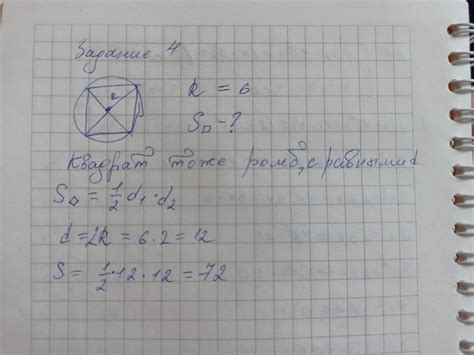 Задание 4
R
R = 6
S□ - ?
Квадрат тоже ромб, с равными d.
S◇ = 1/2 d₁ · d₂
d = 2R = 6 · 2 = 12
S = 1/2 · 12 · 12 = 72